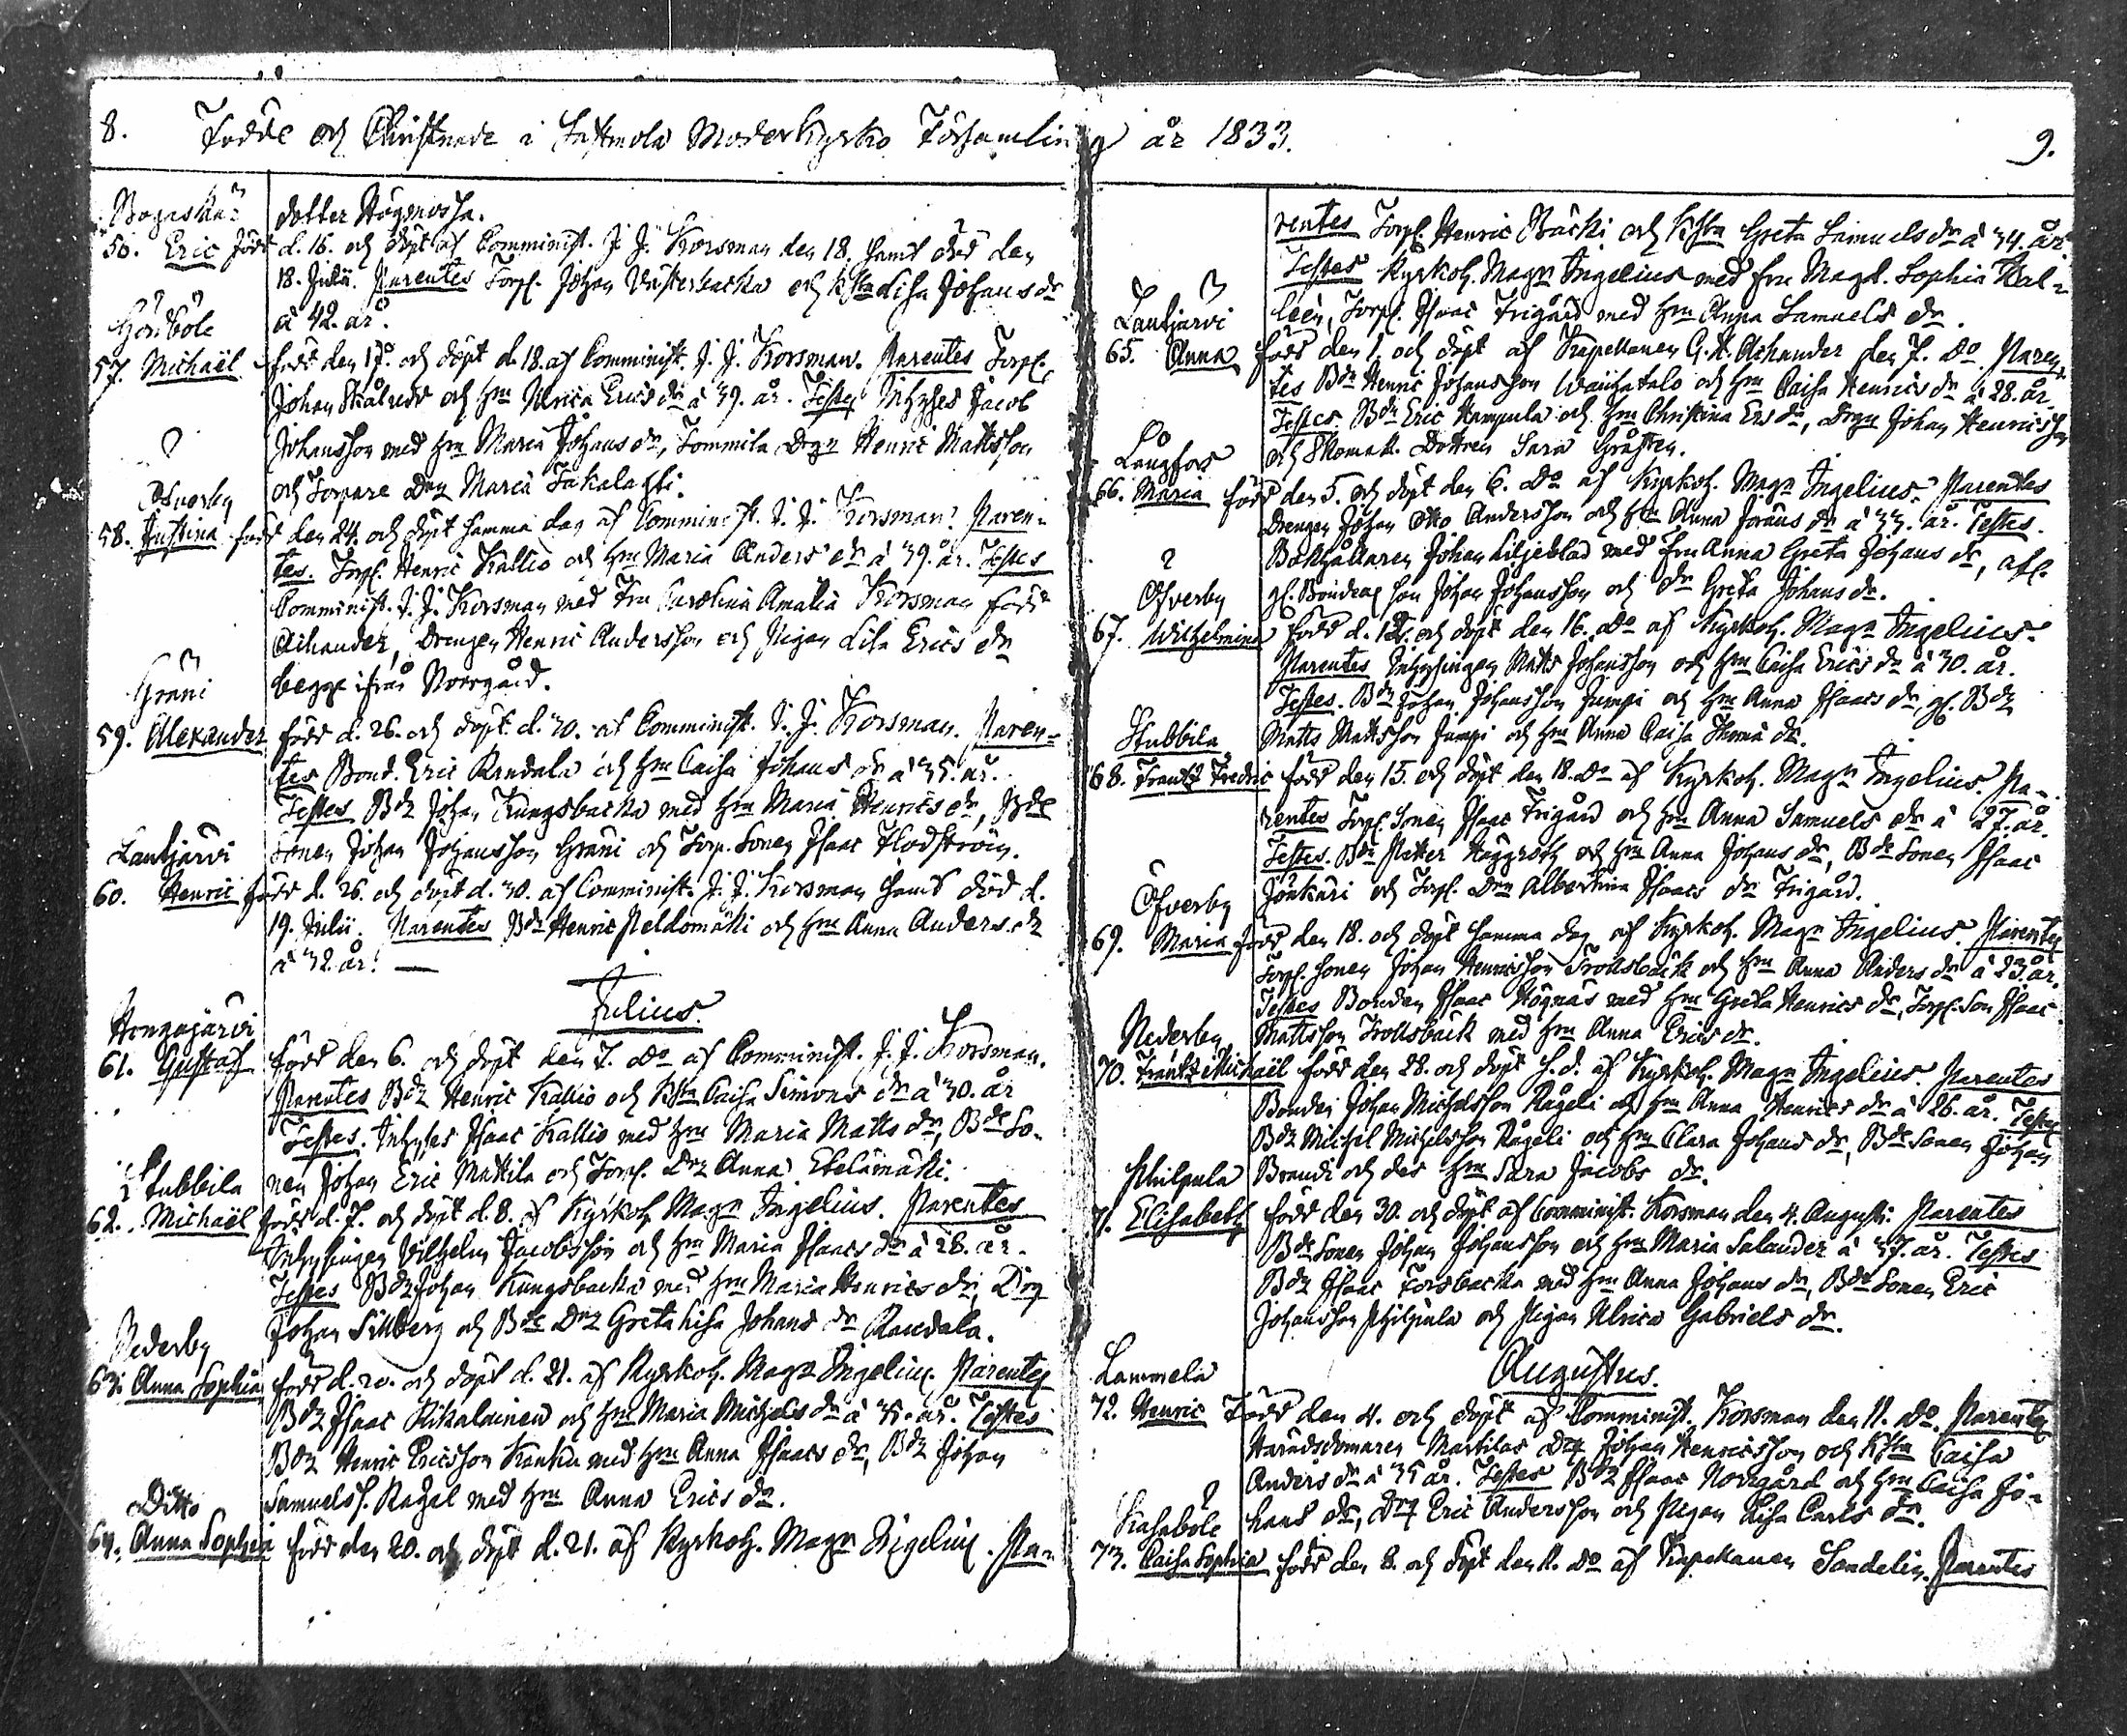 8. Födde och Christnade i Lastmola Moderkyrko Församling år 1833. 9.
Bogaskär
dotter Högmossa.
56. Eric född d. 16. och döpt af Comminist. J. J. Korsman den 18. samt död den
18. Julii. Parentes Torp. Johan Västerbacka och hustru Lisa Johans dr
à 42. år.
Gördböle
57. Michaël född den 17. och döpt d. 18. af Comminist. J. J. Korsman. Parentes Torp.
Johan Skålred och Hm Ulrica Erics dr à 39. år. Testes Inhyses Jacob
Johansson med Hm Maria Johans dr, Sommila Drgn Henric Mattsson
och Torpare Drn Maria Takalahti.
Öfverby
58. Justina född den 24. och döpt samma dag af Comminist. J. J. Korsman. Paren-
tes. Torp. Henric Kallio och Hm Maria Anders dr à 39. år. Testes
Comminist. J. J. Korsman med Fru Carolina Amalia Korsman född
Achander, Drengen Henric Andersson och Pigan Lisa Erics dr
begge ifrån Norrgård.
Gräni
59. Alexander född d. 26. och döpt d. 30. af Comminist. J. J. Korsman. Paren-
tes Bond. Eric Randala och Hm Caisa Johans dr à 35. år.
Testes Bdn Johan Kungsbacka med Hm Maria Henrics dr, Bde
Sonen Johan Johansson Gräni och Torp. Sonen Isaac Flodström.
Lautjärvi
60. Henric född d. 26. och döpt d. 30. af Comminist. J. J. Korsman samt död d.
19. Julii. Parentes Bdn Henric Peldomäki och Hm Anna Anders dr
à 32. år. —
Julius.
Honganjärvi
61. Gustaf född den 6. och döpt den 7. do af Comminist. J. J. Korsman.
Parentes Bdn Henric Kallio och Hstru Caisa Simons dr à 30. år
Testes. Inhyses Isaac Kallio med Hm Maria Matts dr, Bde So-
nen Johan Eric Mattila och Torp. Drn Anna Ekelämäki.
Stubbila
62. Michaël född d. 7. och döpt d. 8. af Kyrkoh. Magn Ingelius. Parentes
Inhysingen Wilhelm Jacobsson och Hm Maria Isaacs dr à 28. år.
Testes Bdn Johan Kungsbacka med Hm Maria Henrics dr, Drg
Johan Sillberg och Bde Drn Greta Lisa Johans dr Randala.
Nederby
63. Anna Sophia född d. 20. och döpt d. 21. af Kyrkoh. Magn Ingelius. Parentes
Bdn Isaac Rikalainen och Hm Maria Michels dr à 35. år. Testes
Bdn Henric Ericsson Kanka med Hm Anna Isaacs dr, Bdn Johan
Samuelss. Ragel med Hm Anna Erics dr.
Ditto
64. Anna Sophia född den 20. och döpt d. 21. af Kyrkoh. Magn Ingelius. Pa-
rentes Torp. Henric Bäcki och Hstru Greta Samuels dr à 34. år.
Testes Kyrkoh. Magn Ingelius med Fru Magd. Sophia Hal-
leen, Torp. Isaac Frigård med Hm Anna Samuels dr.
Lautjärvi
65. Anna född den 1. och döpt af Kapellanen G. A. Achander den 7. do. Paren-
tes Bdn Henric Johansson Wäihatalo och Hm Caisa Henrics dr à 28. år.
Testes. Bdn Eric Hampula och Hm Christina Ers dr, Drgn Johan Henricsson
och Skomak. Dottren Sara Gråsten.
Långfors
66. Maria född den 5. och döpt den 6. do af Kyrkoh. Magn Ingelius. Parentes
Drengen Johan Otto Andersson och Hm Anna Jöräns dr à 33. år. Testes.
Bokhållaren Johan Liljeblad med Fru Anna Greta Johans dr, afl.
gl. Bondens son Johan Johansson och dn Greta Johans dr.
Öfverby
67. Wilhelmina född d. 15. och döpt den 16. do af Kyrkoh. Magn Ingelius.
Parentes Inhysingen Matts Johansson och Hm Caisa Erics dr à 30. år.
Testes. Bdn Johan Johansson Jumpi och Hm Anna Isaacs dr, gl. Bdn
Matts Mattsson Jumpi och Hm Anna Caisa Thoma dr.
Stubbila
68. Frantz Fredric född den 15. och döpt den 18. do af Kyrkoh. Magn Ingelius. Pa-
rentes Torp. Sonen Isaac Frigård och Hm Anna Samuels dr à 27. år.
Testes. Bdn Petter Häggroth och Hm Anna Johans dr, Bde Sonen Isaac
Jonkari och Torp. Drn Albertina Isaacs dr Frigård.
Öfverby
69. Maria född den 18. och döpt samma dag af Kyrkoh. Magn Ingelius. Parentes
Torp. Sonen Johan Henricsson Trollsbäck och Hm Anna Anders dr à 23. år.
Testes Bonden Isaac Högnäs med Hm Greta Henrics dr, Torp. Son Isaac
Mattsson Trollsbäck med Hm Anna Erics dr.
Nederby
70. Frantz Michaël född den 28. och döpt s. d. af Kyrkoh. Magn Ingelius. Parentes
Bonden Johan Michelsson Rågeli och Hm Anna Henrics dr à 26. år. Testes
Bdn Michel Michelsson Rågeli och Hm Clara Johans dr, Bde Sonen Johan
Brandi och des Hm Sara Jacobs dr.
Philpula
71. Elisabeth född den 30. och döpt af Comminist. Korsman den 4. Augusti. Parentes
Bde Sonen Johan Johansson och Hm Maria Salander à 37. år. Testes
Bdn Isaac Forsbacka med Hm Anna Johans dr, Bde Sonen Eric
Johansson Philpula och Pigan Ulrica Gabriels dr.
Augustus.
Lammela
72. Henric Född den 4. och döpt af Comminist. Korsman den 11. do. Parentes
Häradsdomaren Martilas Drg Johan Henricsson och Hstru Caisa
Anders dr à 35 år. Testes Bdn Isaac Norrgård och Hm Caisa Jo-
hans dr, Drg Eric Andersson och Pigan Lisa Carls dr.
Kasaböle
73. Caisa Sophia född den 8. och döpt den 11. do af Kapellanen Sandelin. Parentes